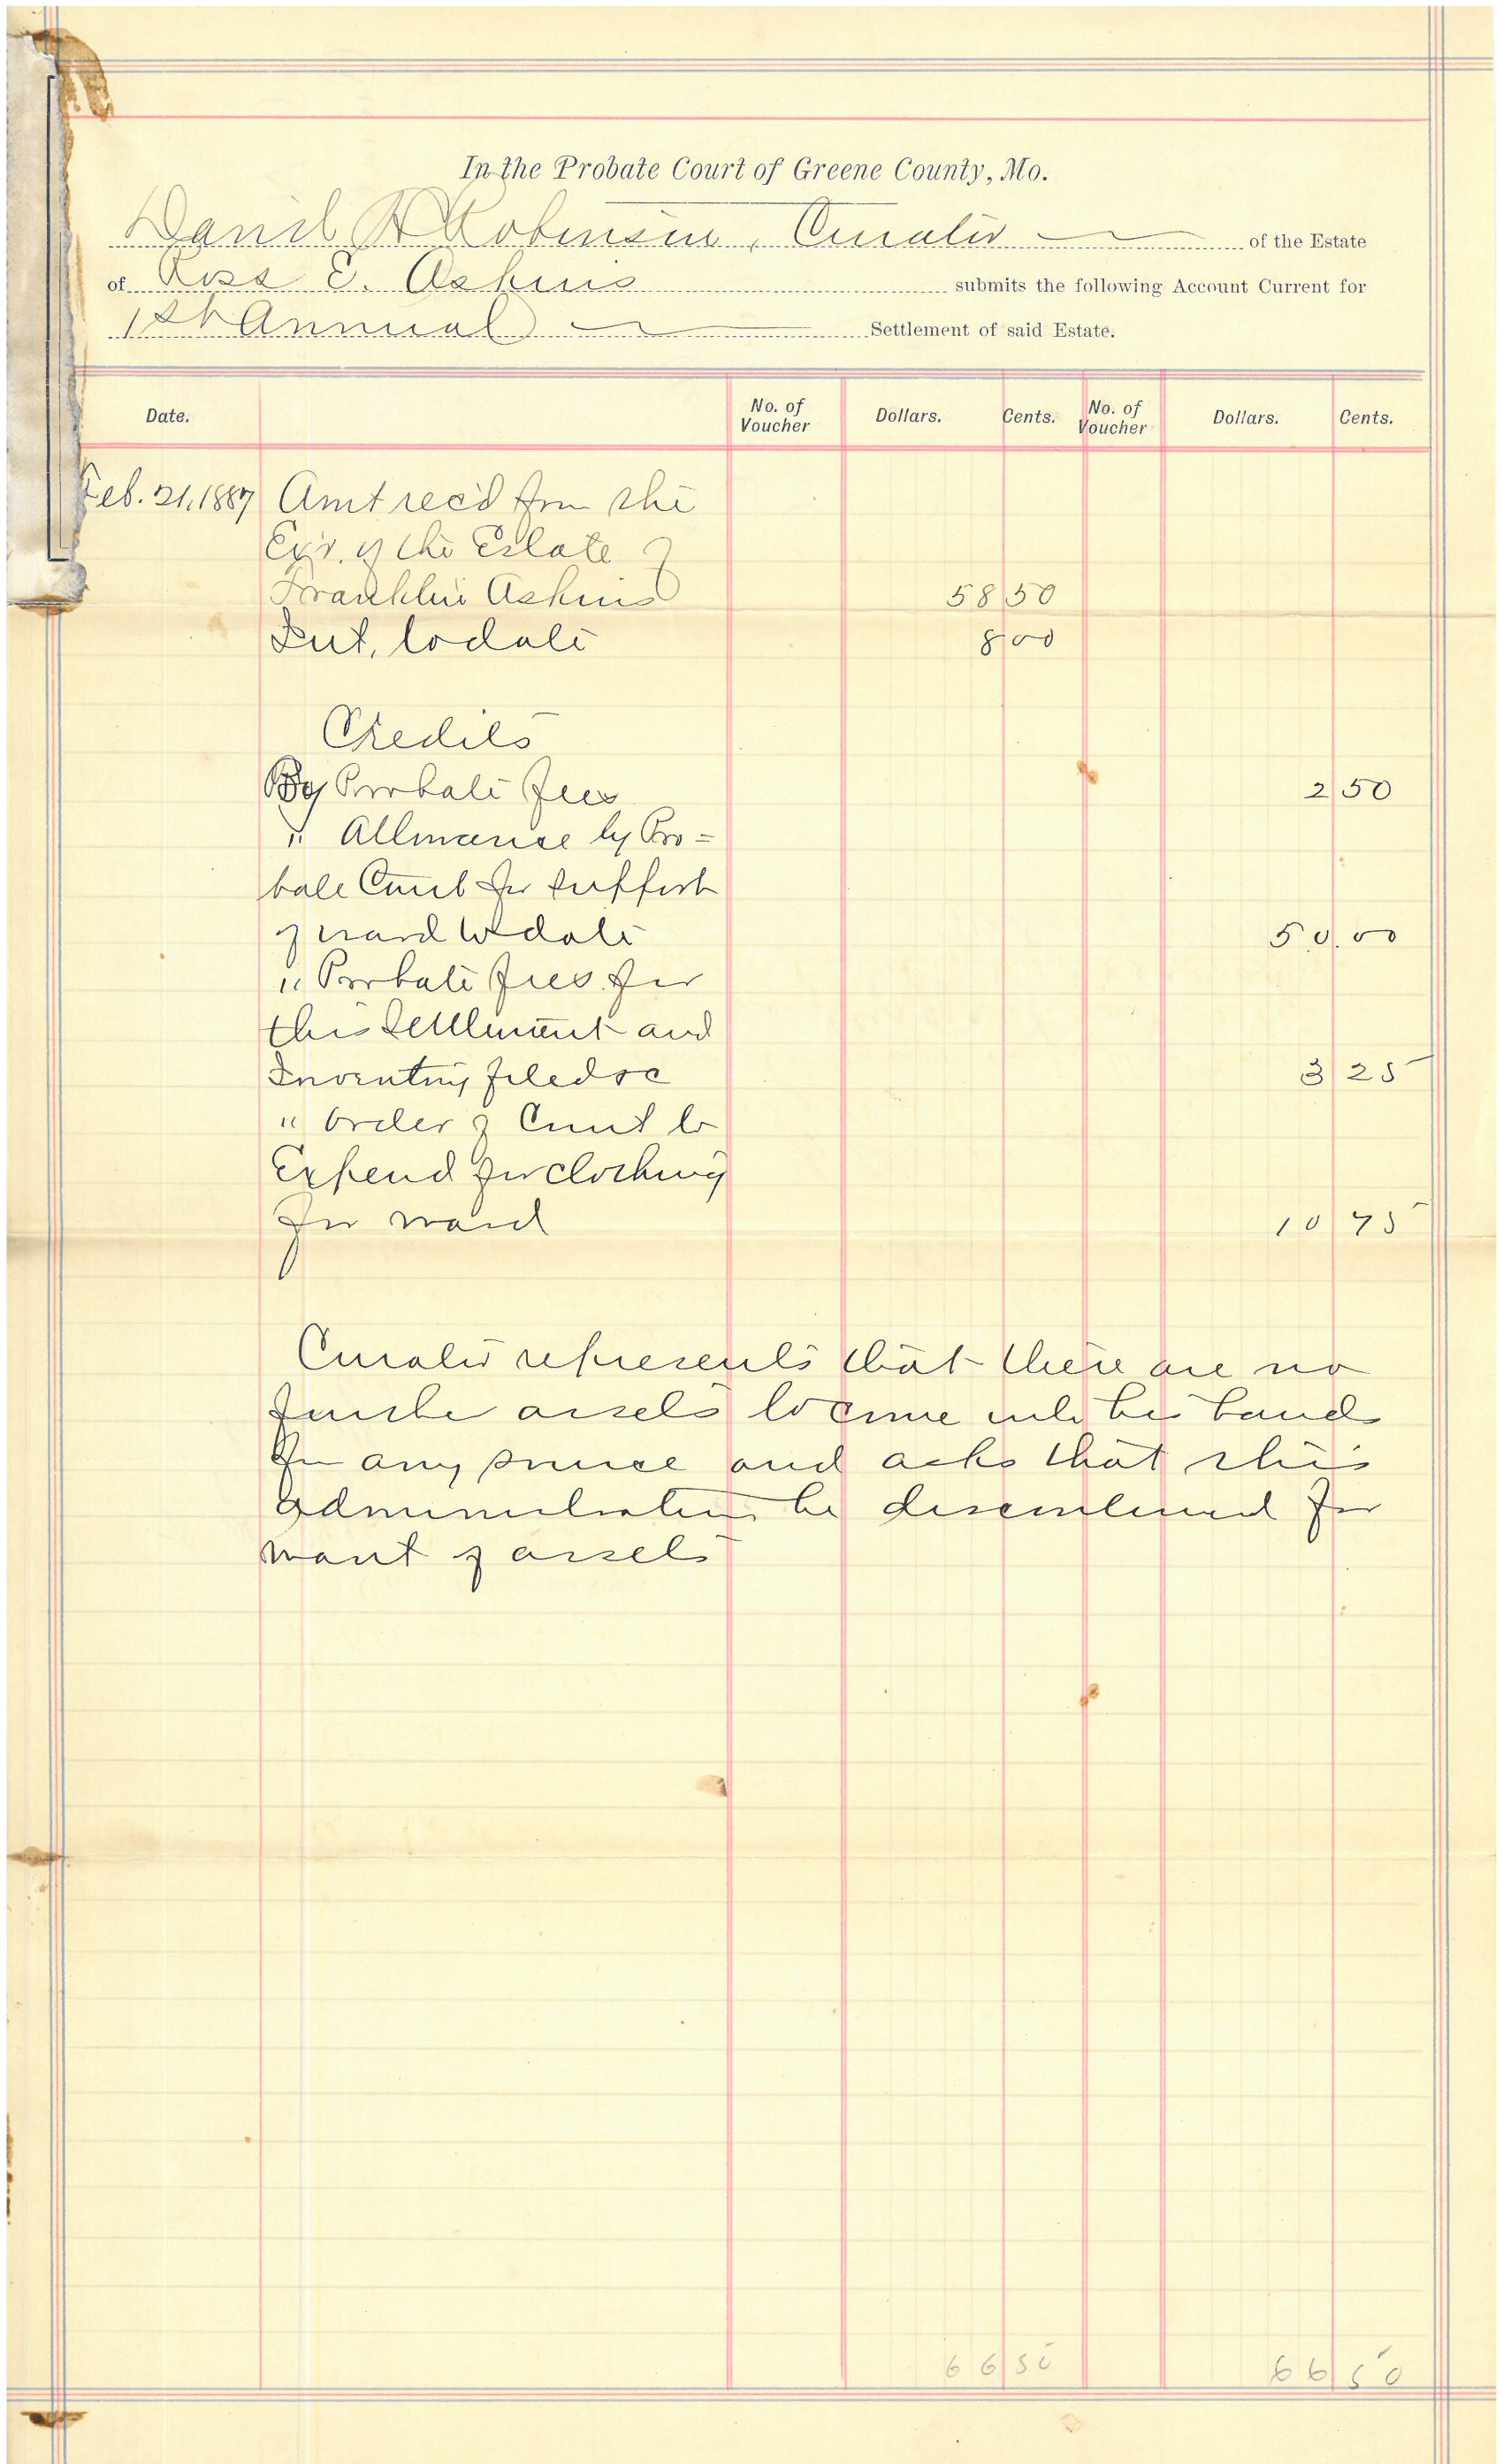 In the Probate Court of Greene County, Mo.
Daniel H Robinson, Curator of the Estate
of Rosa E. Askins submits the following Account Current for
1st Annual Settlement of said Estate.
Date. No. of Voucher Dollars. Cents. No. of Voucher Dollars. Cents.
Feb. 21, 1887 Amt rec'd from the
Exr. of the Estate of
Franklin Askins 58 50
Int, to date 8 00
Credits
By Probate fees 2 50
" Allowance by Pro=
bate Court for support
of ward to date 50.00
" Probate fees for
this Settlement and
Inventory filed &c 3 25
" order of Court to
Expend for clothing
for ward 10 75
Curator represents that there are no
further assets to come into his hands
from any source and asks that this
administration be discontinued for
want of assets
66 50 66 50